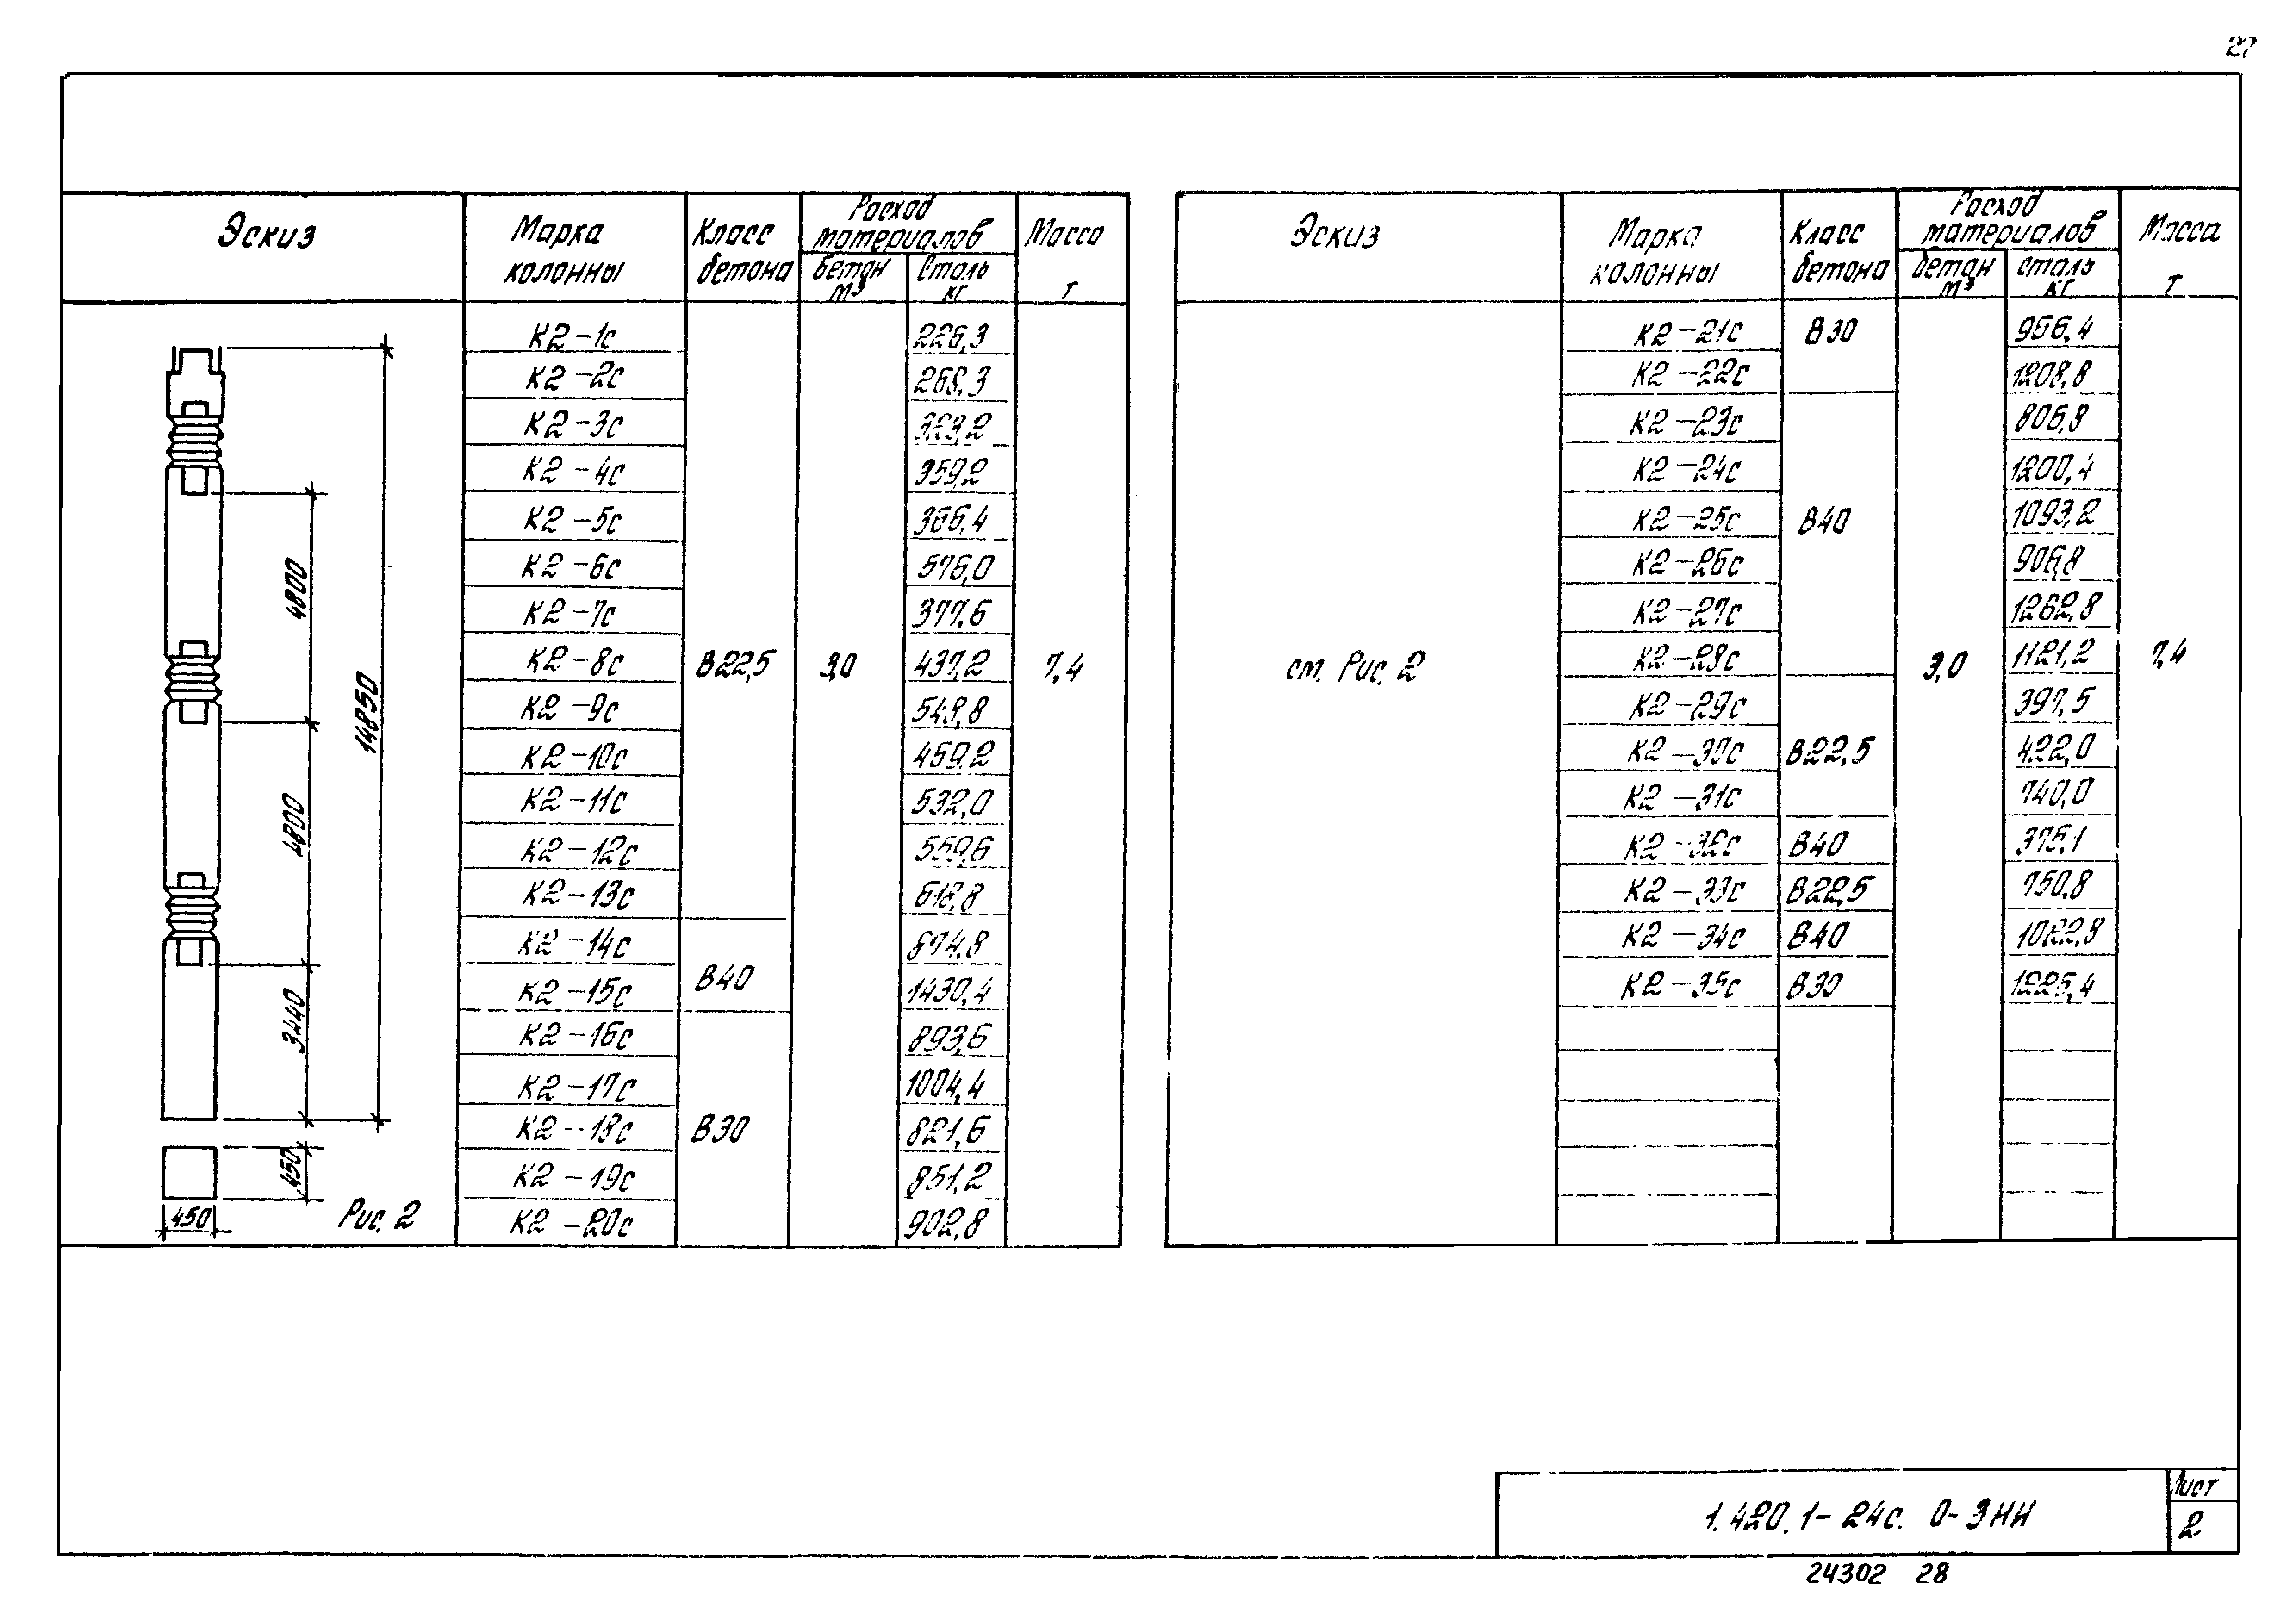 27
Эскиз
Марка колонны
Класс бетона
Расход материалов
бетон м³
сталь кг
Масса т
4800
4800
3440
14850
450
450
Рис. 2
К2-1с 226,3
К2-2с 268,3
К2-3с 323,2
К2-4с 359,2
К2-5с 366,4
К2-6с 576,0
К2-7с 377,6
К2-8с В22,5 3,0 437,2 7,4
К2-9с 548,8
К2-10с 469,2
К2-11с 532,0
К2-12с 559,6
К2-13с 618,8
К2-14с 674,8
К2-15с В40 1430,4
К2-16с 893,6
К2-17с 1004,4
К2-18с В30 821,6
К2-19с 851,2
К2-20с 902,8
Эскиз
Марка колонны
Класс бетона
Расход материалов
бетон м³
сталь кг
Масса т
К2-21с В30 956,4
К2-22с 1208,8
К2-23с 806,8
К2-24с 1200,4
К2-25с В40 1093,2
К2-26с 906,8
К2-27с 1262,8
ст. Рис. 2 К2-28с 3,0 1121,2 7,4
К2-29с 397,5
К2-30с В22,5 422,0
К2-31с 740,0
К2-32с В40 375,1
К2-33с В22,5 750,8
К2-34с В40 1022,8
К2-35с В30 1225,4
1.420.1-24с. 0-3НИ
Лист
2
24302 28